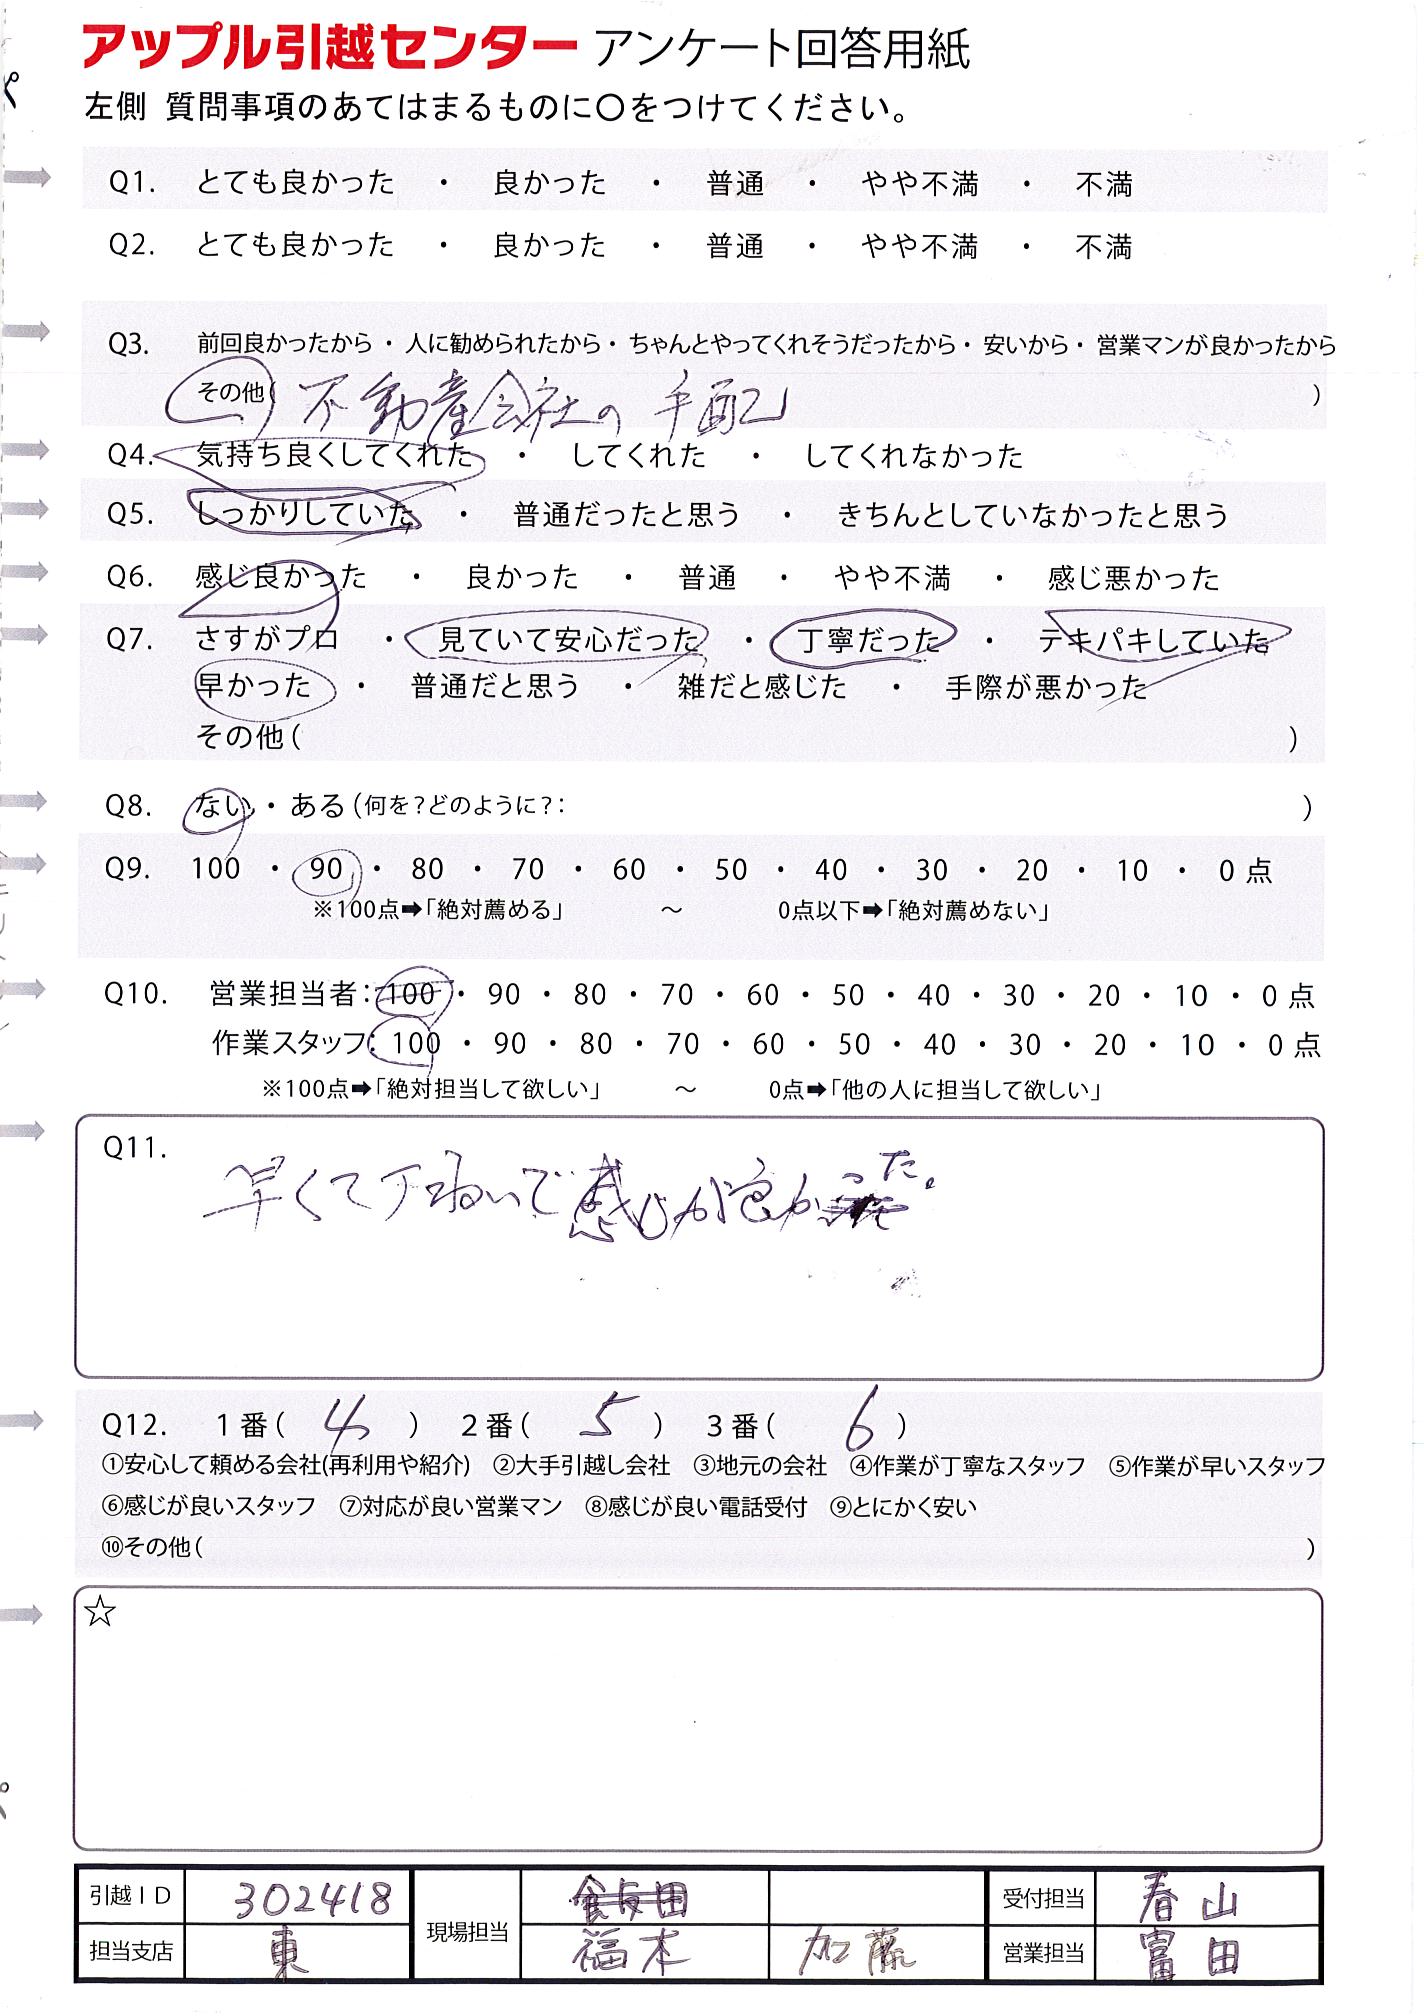 アップル引越センター アンケート回答用紙
左側 質問事項のあてはまるものに〇をつけてください。
Q1. とても良かった ・ 良かった ・ 普通 ・ やや不満 ・ 不満
Q2. とても良かった ・ 良かった ・ 普通 ・ やや不満 ・ 不満
Q3. 前回良かったから・人に勧められたから・ちゃんとやってくれそうだったから・安いから・営業マンが良かったから
その他( 不動産会社の手配 )
Q4. 気持ち良くしてくれた ・ してくれた ・ してくれなかった
Q5. しっかりしていた ・ 普通だったと思う ・ きちんとしていなかったと思う
Q6. 感じ良かった ・ 良かった ・ 普通 ・ やや不満 ・ 感じ悪かった
Q7. さすがプロ ・ 見ていて安心だった ・ 丁寧だった ・ テキパキしていた
早かった ・ 普通だと思う ・ 雑だと感じた ・ 手際が悪かった
その他( )
Q8. ない・ある(何を?どのように?: )
Q9. 100 ・ 90 ・ 80 ・ 70 ・ 60 ・ 50 ・ 40 ・ 30 ・ 20 ・ 10 ・ 0点
※100点➡「絶対薦める」 ～ 0点以下➡「絶対薦めない」
Q10. 営業担当者:100 ・ 90 ・ 80 ・ 70 ・ 60 ・ 50 ・ 40 ・ 30 ・ 20 ・ 10 ・ 0点
作業スタッフ:100 ・ 90 ・ 80 ・ 70 ・ 60 ・ 50 ・ 40 ・ 30 ・ 20 ・ 10 ・ 0点
※100点➡「絶対担当して欲しい」 ～ 0点➡「他の人に担当して欲しい」
Q11.
早くて丁ねいで感じが良かった。
Q12. 1番( 4 ) 2番( 5 ) 3番( 6 )
①安心して頼める会社(再利用や紹介) ②大手引越し会社 ③地元の会社 ④作業が丁寧なスタッフ ⑤作業が早いスタッフ
⑥感じが良いスタッフ ⑦対応が良い営業マン ⑧感じが良い電話受付 ⑨とにかく安い
⑩その他( )
☆
引越ID 302418 現場担当 受付担当 春山
担当支店 東 福本 加藤 営業担当 富田